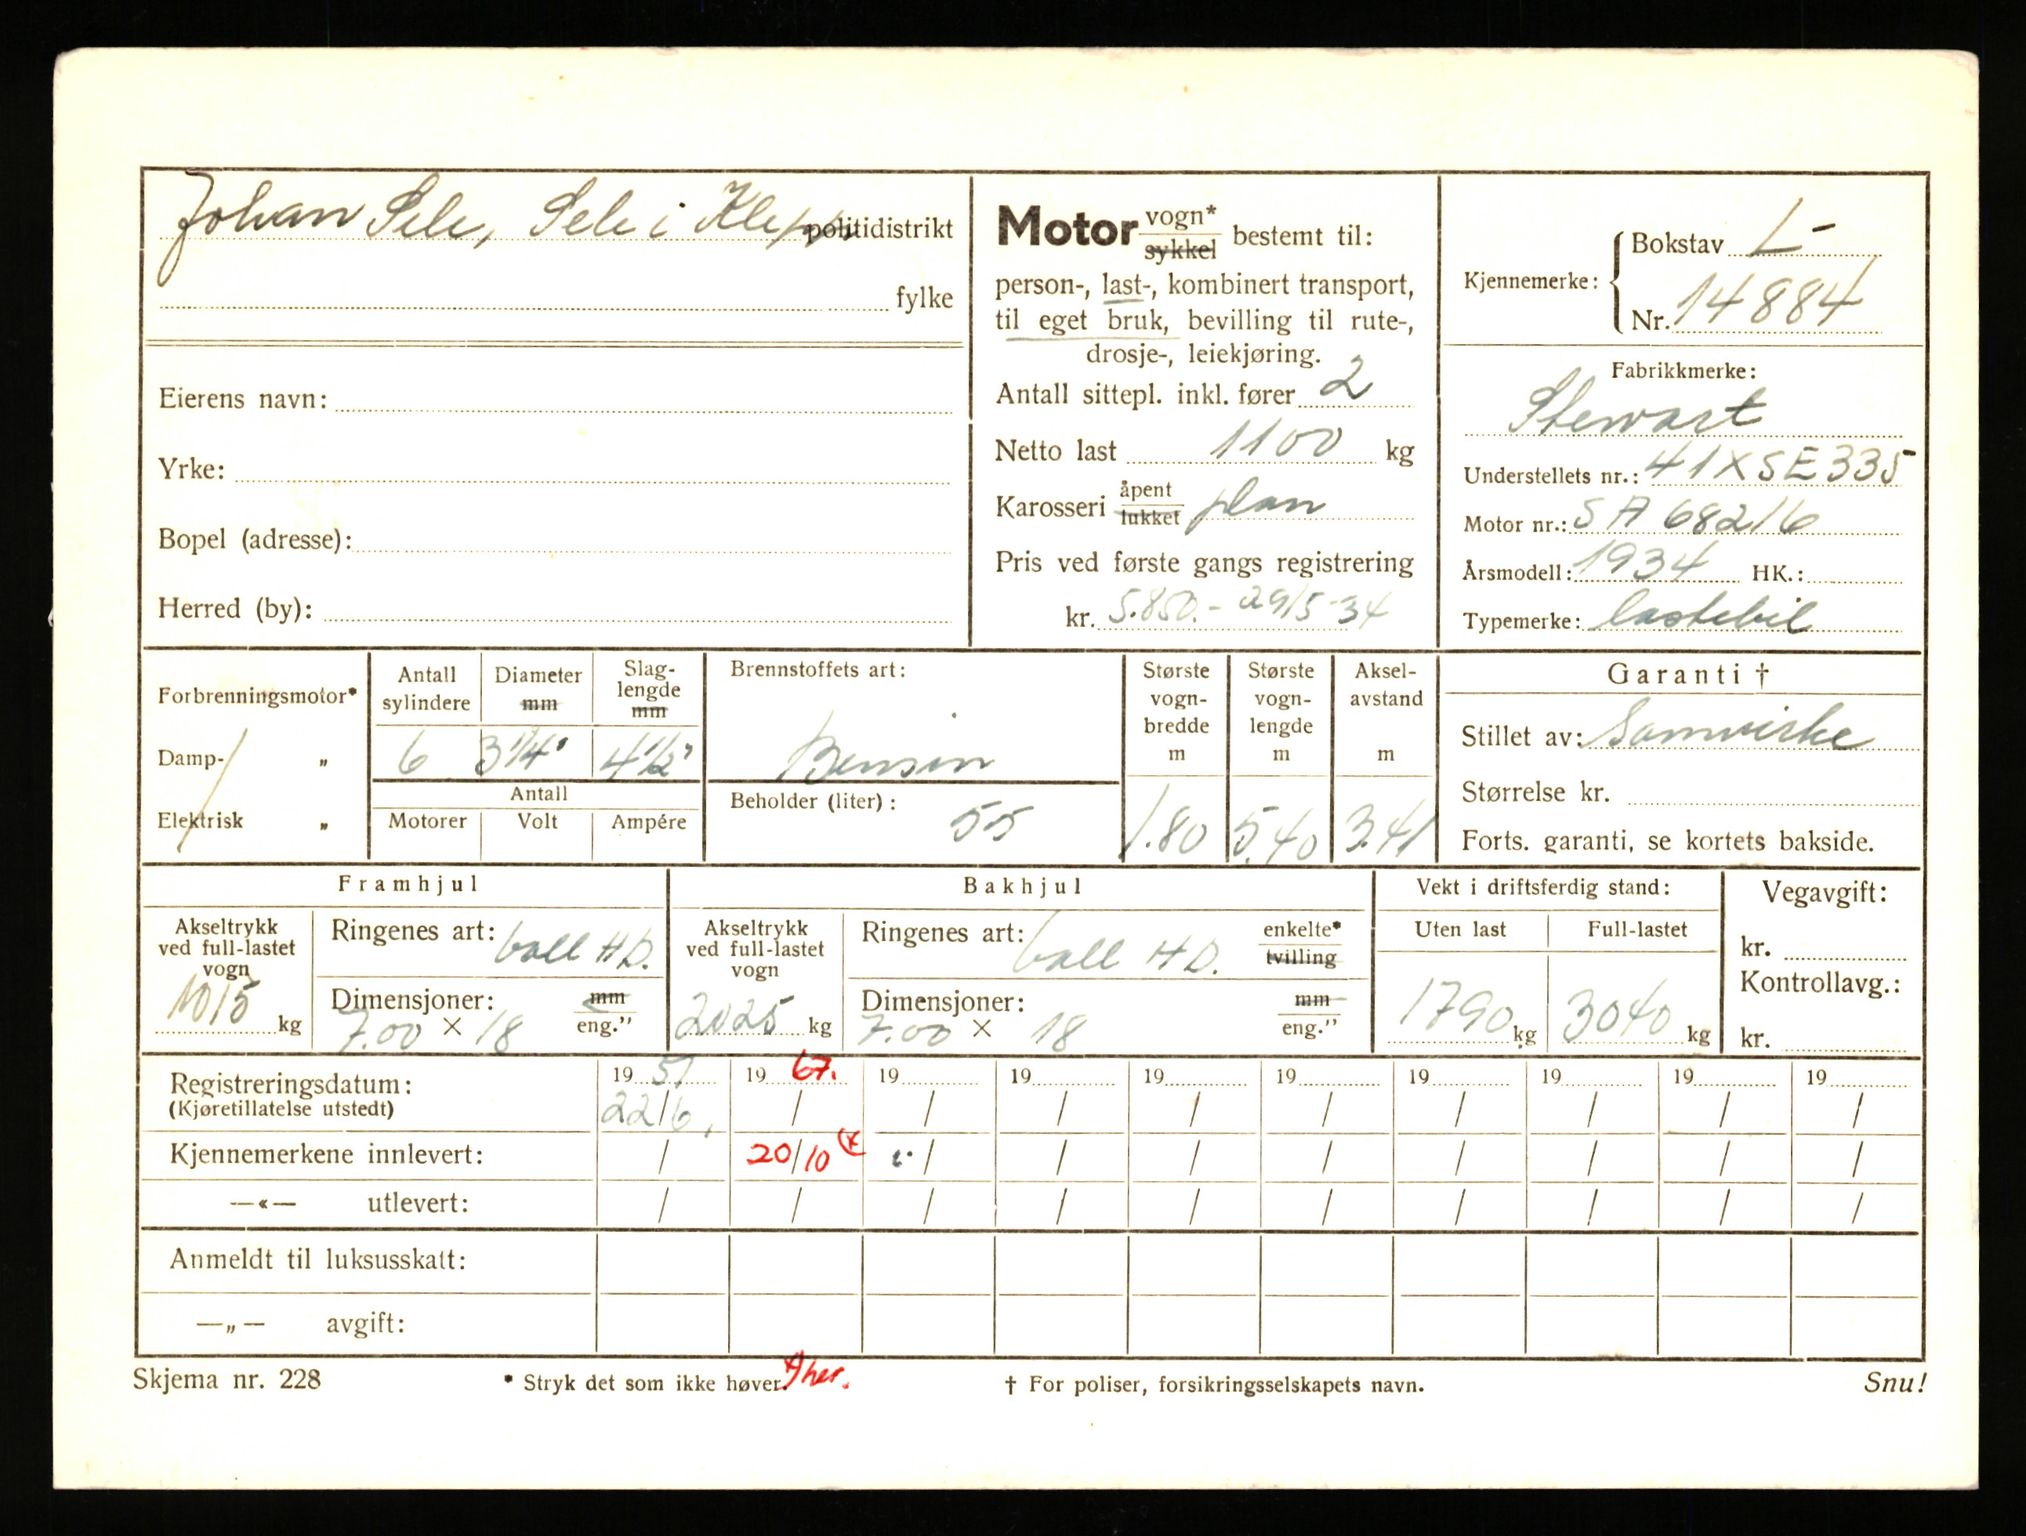 Johan Sele, Sele i Klepp politidistrikt
fylke
Eierens navn:
Yrke:
Bopel (adresse):
Herred (by):
Motor vogn* sykkel bestemt til:
person-, last-, kombinert transport,
til eget bruk, bevilling til rute-,
drosje-, leiekjøring.
Antall sittepl. inkl. fører 2
Netto last 1100 kg
Karosseri åpent lukket plan
Pris ved første gangs registrering
kr. 5.850.- 29/5-34
Kjennemerke: Bokstav L-
Nr. 14884
Fabrikkmerke:
Stewart
Understellets nr.: 41XSE335
Motor nr.: SA 68216
Årsmodell: 1934 HK.:
Typemerke: lastebil
Forbrenningsmotor*
Damp- „
Elektrisk „
Antall sylindere
Diameter mm
Slaglengde mm
6 3 1/4" 4 1/2"
Antall
Motorer Volt Ampére
Brennstoffets art:
Bensin
Beholder (liter):
55
Største vogn-bredde m
Største vogn-lengde m
Aksel-avstand m
1.80 5.40 3.41
Garanti †
Stillet av: Samvirke
Størrelse kr.
Forts. garanti, se kortets bakside.
Framhjul
Akseltrykk ved full-lastet vogn
1015 kg
Ringenes art: ball HD.
Dimensjoner: mm
7.00 × 18 eng."
Bakhjul
Akseltrykk ved full-lastet vogn
2025 kg
Ringenes art: ball HD. enkelte* tvilling
Dimensjoner: mm
7.00 × 18 eng."
Vekt i driftsferdig stand:
Uten last Full-lastet
1790 kg 3040 kg
Vegavgift:
kr.
Kontrollavg.:
kr.
Registreringsdatum: 19 51 19 67. 19 19 19 19 19 19 19 19
(Kjøretillatelse utstedt) 22/6. / / / / / / / / /
Kjennemerkene innlevert: / 20/10 (x / / / / / / / /
—«— utlevert: / / / / / / / / / /
Anmeldt til luksusskatt:
—„— avgift:
Skjema nr. 228
* Stryk det som ikke høver.
† For poliser, forsikringsselskapets navn.
Snu!